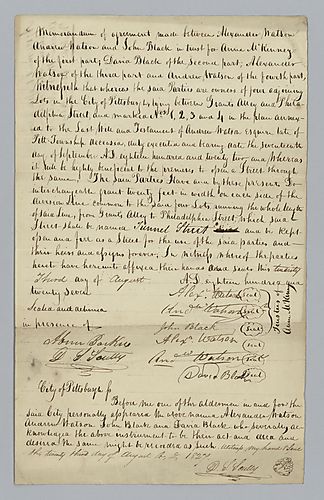 Memorandum of agreement made between Alexander Watson
Andrew Watson and John Black in trust for Anna McKinney
of the first part; David Black of the Second part; Alexander
Watson of the third part and Andrew Watson of the fourth part,
Witnesseth that whereas the said Parties are owners of four adjoining
Lots in the City of Pittsburg, lying between Grants Alley and Phila-
delphia Street and marked Nos 1, 2, 3 and 4 in the plan annex-
ed to the Last Will and Testament of Andrew Watson Esquire late of
Pitt Township deceased, duly executed and bearing date the seventeenth
day of September A.D. eighteen hundred and twenty two, and Whereas
it will be highly beneficial to the premises to open a Street through
the same; The said Parties Have and by these presents Do
interchangeably grant twenty feet in width on each side of the
division Line common to the said four Lots, running the whole length
of said Line, from Grants Alley to Philadelphia Street; which said
Street shall be named Tunnel Street and to be Kept
open and free as a Street for the use of the said parties and
their heirs and assigns forever. In witness whereof the parties
here hereunto affixed their hands and seals this twenty
Third day of August A.D. eighteen hundred and
twenty seven
Sealed and delivered
in presence of
D. S. Scully
Alex. Watson seal
Andw Watson seal
John Black seal
Trustees of
Ann McKinny
Alex Watson seal
Andw Watson seal
David Black seal
City of Pittsburgh ss
Before me one of the aldermen in and for the
said City personally appeared the above named Alexander Watson
Andrew Watson John Black and David Black, who severally ac-
knowledged the above instrument to be their act and deed and
desired the same might be recorded as such. Witness my hand & seal
the twenty third day of August A.D. 1827
D. S. Scully